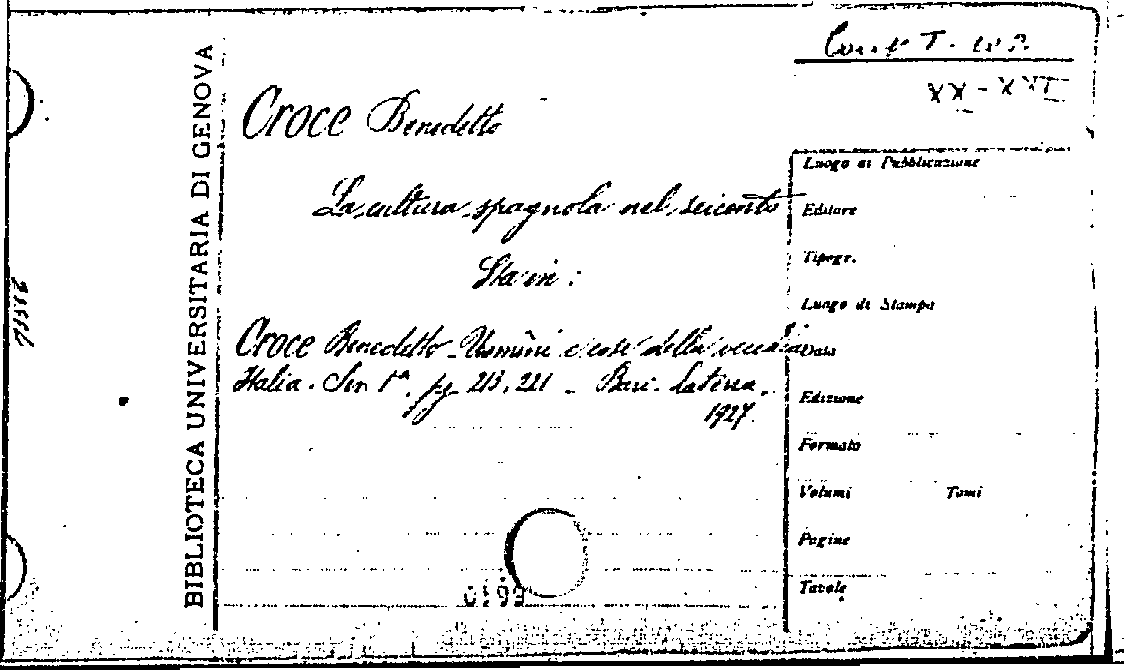 XX-XVI
BIBLIOTECA UNIVERSITARIA DI GENOVA
Croce Benedetto
La cultura spagnola nel seicento
Sta in:
Croce Benedetto - Uomini e cose della vecchia
Italia. Ser 1ª pg 213, 221 - Bari - Laterza.
1927.
Luogo di Pubblicazione
Editore
Tipogr.
Luogo di Stampa
Data
Edizione
Formato
Volumi Tomi
Pagine
Tavole